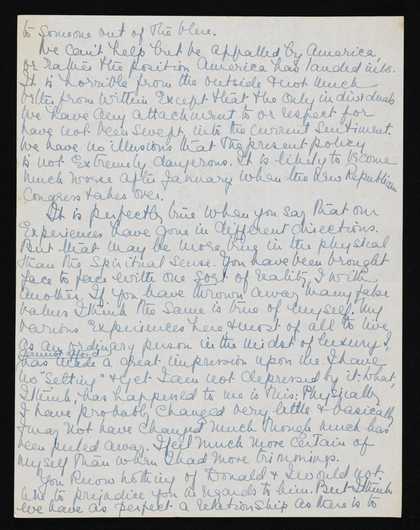 to someone out of the blue.
We can't help but be appalled by America
or rather the position America has landed into.
It is horrible from the outside & not much
better from within except that the only individuals
we have any attachment to or respect for
have not been swept into the current sentiment.
We have no illusions that the present policy
is not extremely dangerous. It is likely to become
much worse after January when the new Republican
Congress takes over.
It is perfectly true when you say that our
experiences have gone in different directions.
But that may be more true in the physical
than the spiritual sense. You have been brought
face to face with one sort of reality, I with
another. If you have thrown away many false
values I think the same is true of myself. My
various experiences here & most of all to live
as an ordinary person in the midst of luxury I
cannot afford
has made a great impression upon me. I have
no "setting" & yet I am not depressed by it. What,
I think, has happened to me is this: Physically
I have probably changed very little & basically
I may not have changed much though much has
been pulled away. I feel much more certain of
myself than when I had more trimmings.
You know nothing of Donald & I would not
like to prejudice you in regards to him. But I think
we have as perfect a relationship as there is to